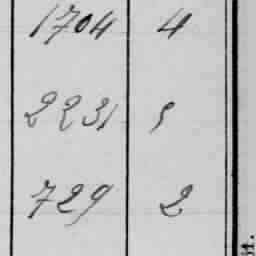 1704 4
2231 5
729 2